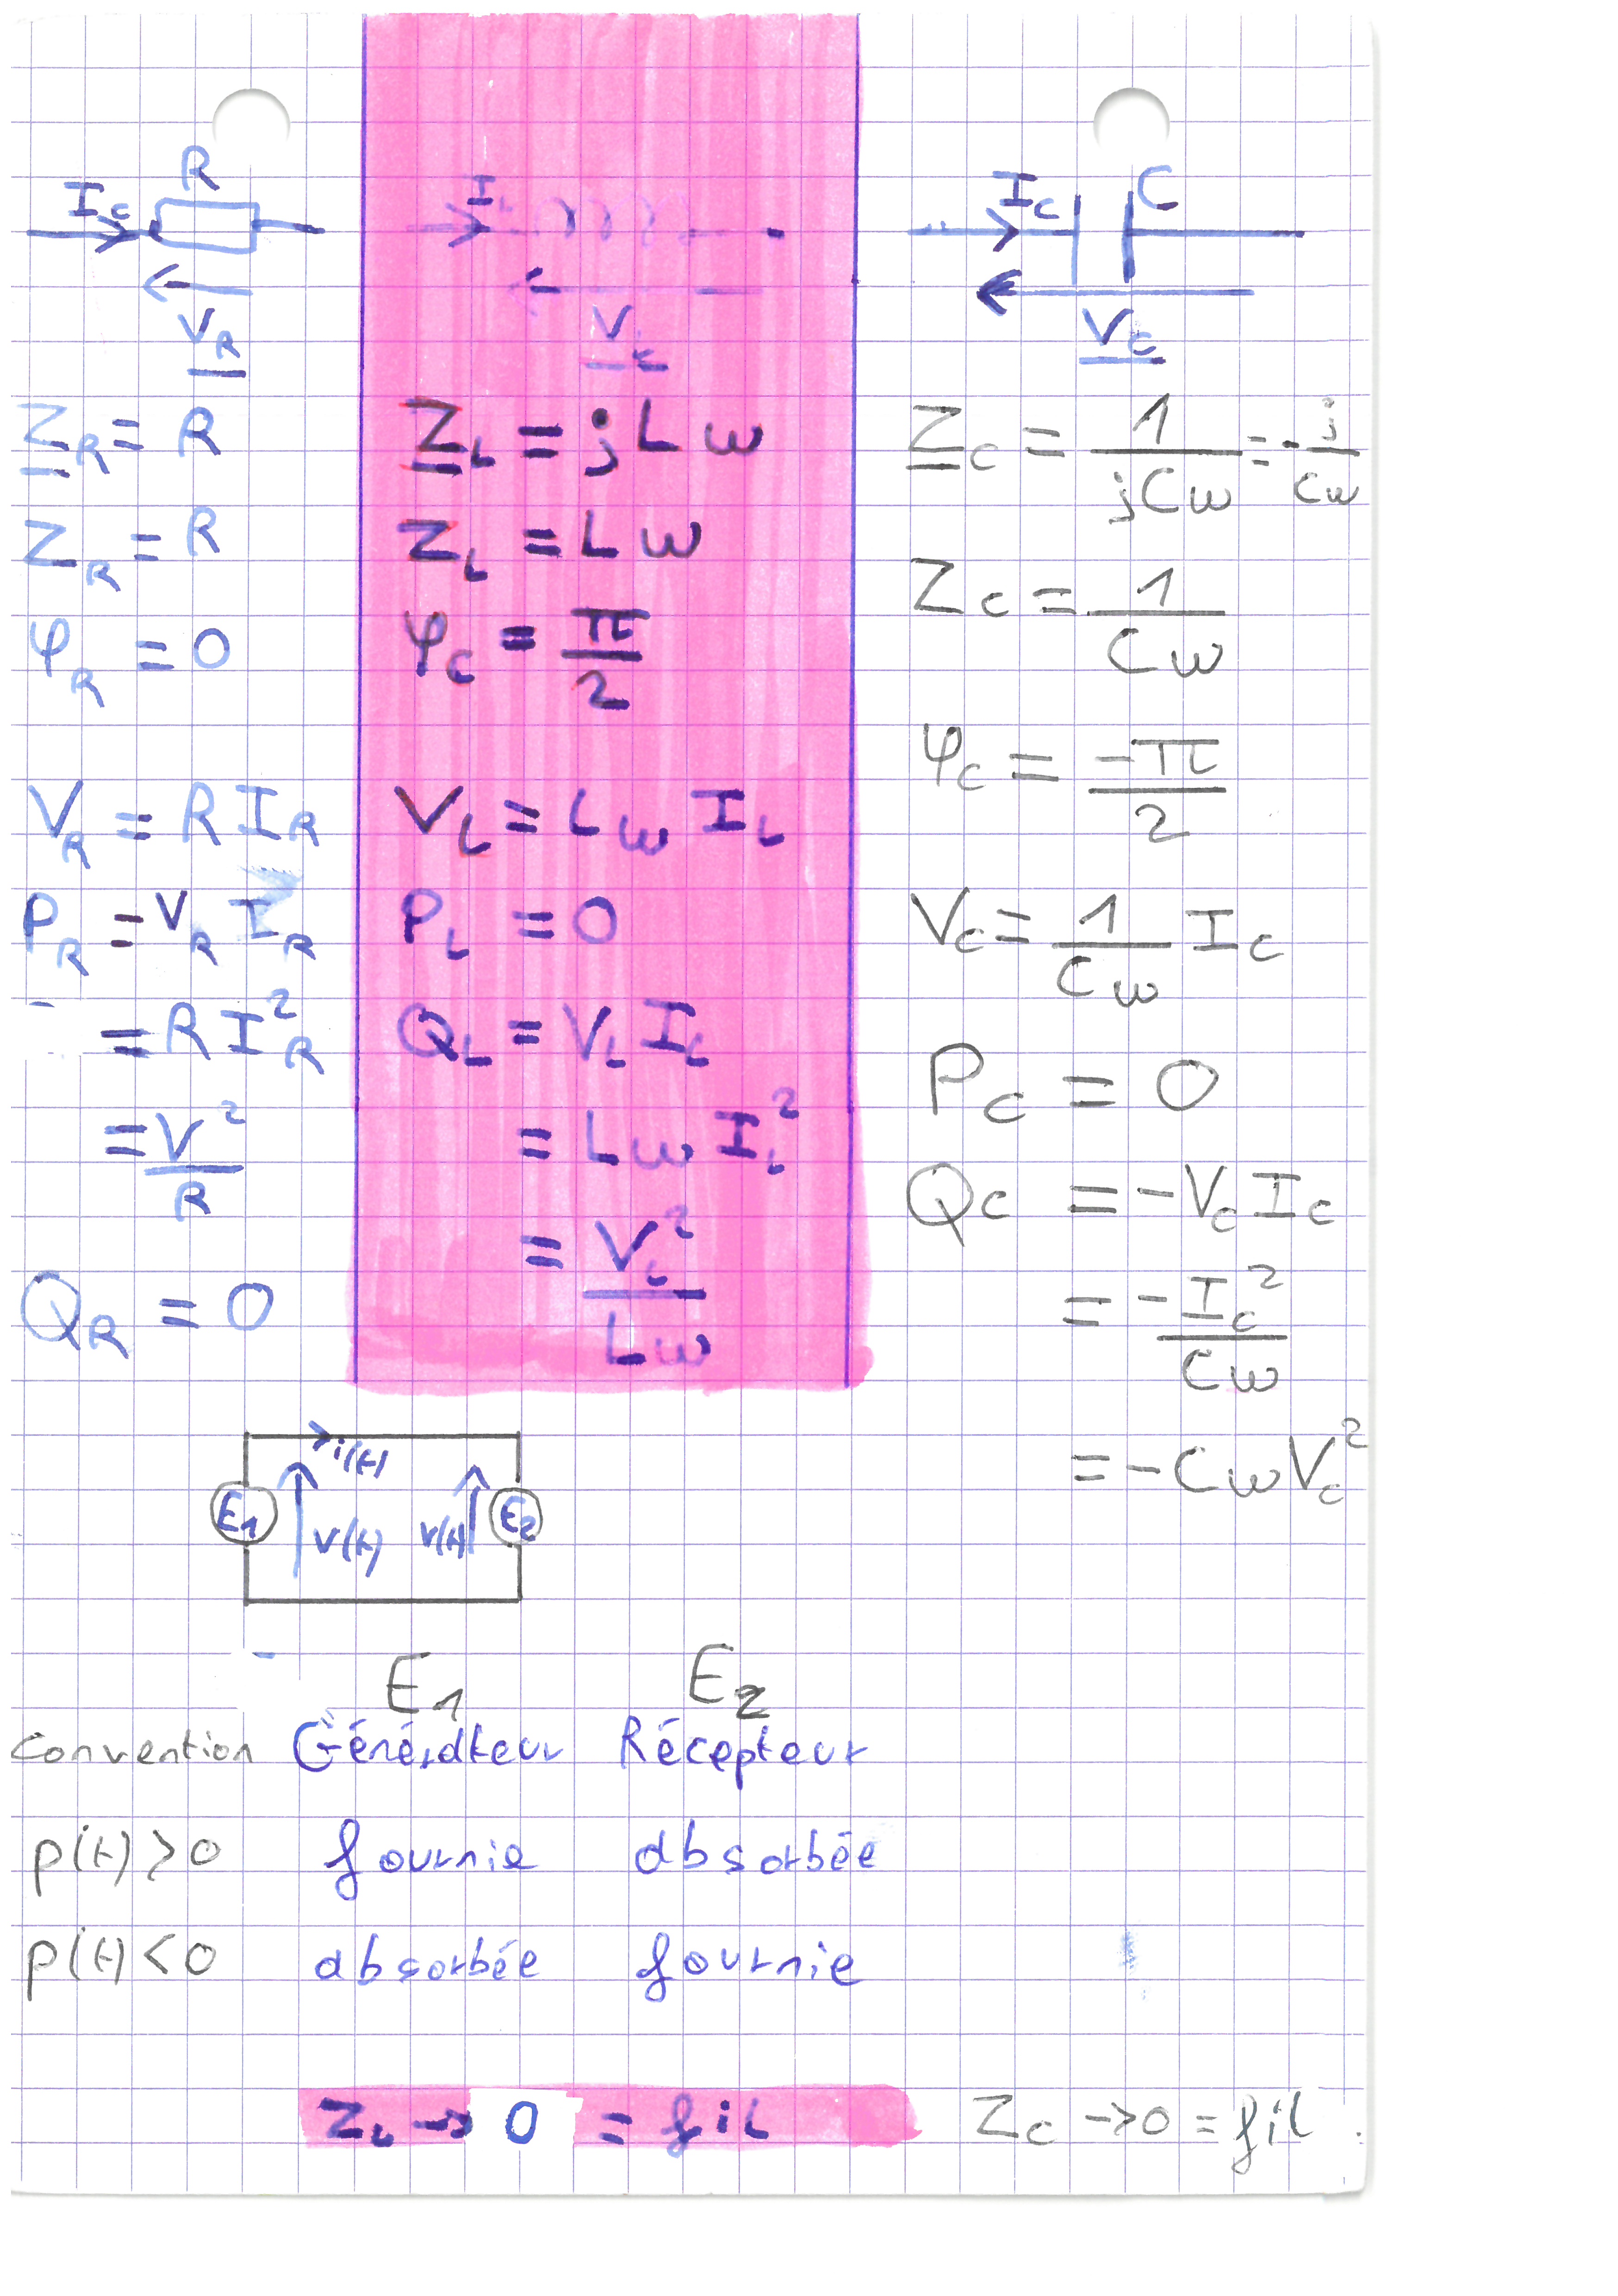 I_C R
V_R
Z_R = R
Z_R = R
φ_R = 0
V_R = R I_R
P_R = V_R I_R
= R I_R²
= V²/R
Q_R = 0
I_L
V_L
Z_L = jLω
Z_L = Lω
φ_C = π/2
V_L = Lω I_L
P_L = 0
Q_L = V_L I_L
= Lω I_L²
= V_L²/Lω
I_C C
V_C
Z_C = 1/jCω = -j/Cω
Z_C = 1/Cω
φ_C = -π/2
V_C = 1/Cω I_C
P_C = 0
Q_C = -V_C I_C
= -I_C²/Cω
= -Cω V_C²
i(t)
E1 V(t) V(t) E2
E1 E2
Convention Générateur Récepteur
p(t) > 0 fournie absorbée
p(t) < 0 absorbée fournie
Z_L → 0 = fil Z_C → 0 = fil